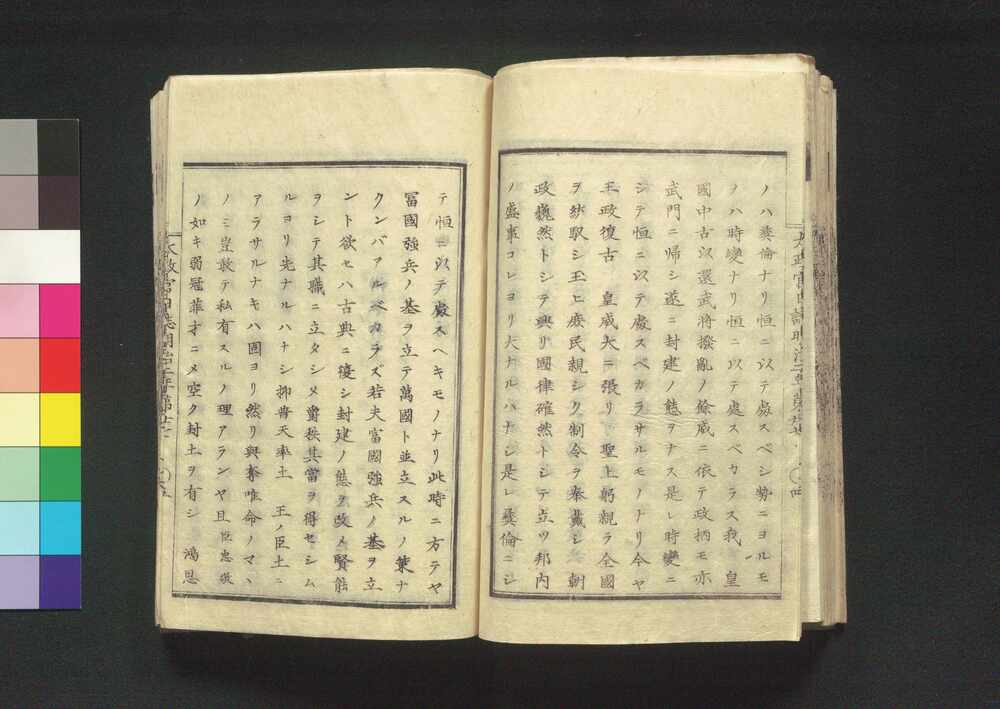 ノハ彜倫ナリ恒ニ以テ處スベシ勢ニヨルモ
ノハ時變ナリ恒ニ以テ處スベカラス我　皇
國中古以還武將撥亂ノ餘威ニ依テ政柄モ亦
武門ニ帰シ遂ニ封建ノ態ヲナス是レ時變ニ
シテ恒ニ以テ處スベカラサルモノナリ今ヤ
王政復古　皇威大ニ張リ　聖上躬親ラ全國
ヲ統馭シ玉ヒ庶民親シク制令ヲ奉戴シ　朝
政巍然トシテ興リ國律確然トシテ立ツ邦内
ノ盛事コレヨリ大ナルハナシ是レ彜倫ニシ
テ恒ニ以テ處スヘキモノナリ此時ニ方テヤ
冨國強兵ノ基ヲ立テ萬國ト並立スルノ業ナ
クンバアルベカラズ若夫富國強兵ノ基ヲ立
ント欲セハ古典ニ復シ封建ノ態ヲ改メ賢能
ヲシテ其職ニ立タシメ爵秩其當ヲ得セシム
ルヨリ先ナルハナシ抑普天率土　王ノ臣土ニ
アラサルナキハ固ヨリ然リ與奪唯命ノマヽ
ノミ豈敢テ私有スルノ理アランヤ且臣忠敬
ノ如キ弱冠菲才ニメ空ク封土ヲ有シ　鴻恩